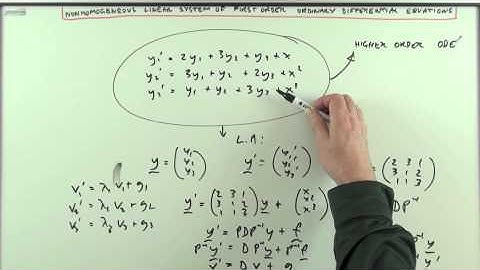 NONHOMOGENEOUS LINEAR SYSTEM OF FIRST ORDER ORDINARY DIFFERENTIAL EQUATIONS
y₁' = 2y₁ + 3y₂ + y₃ + x
y₂' = 3y₁ + y₂ + 2y₃ + x²
y₃' = y₁ + y₂ + 3y₃ + x³
HIGHER ORDER ODE'
L.A:
y = (y₁ y₂ y₃) y' = (y₁' y₂' y₃') = (2 3 1
3 1 2
1 1 3)
v₁' = λ₁ v₁ + g₁
v₂' = λ₂ v₂ + g₂
v₃' = λ₃ v₃ + g₃
y' = (2 3 1
3 1 2
1 1 3) y + (x x² DP⁻¹
y' = PDP⁻¹y + f
P⁻¹y' = DP⁻¹y + P⁻¹f
v' = D v + g